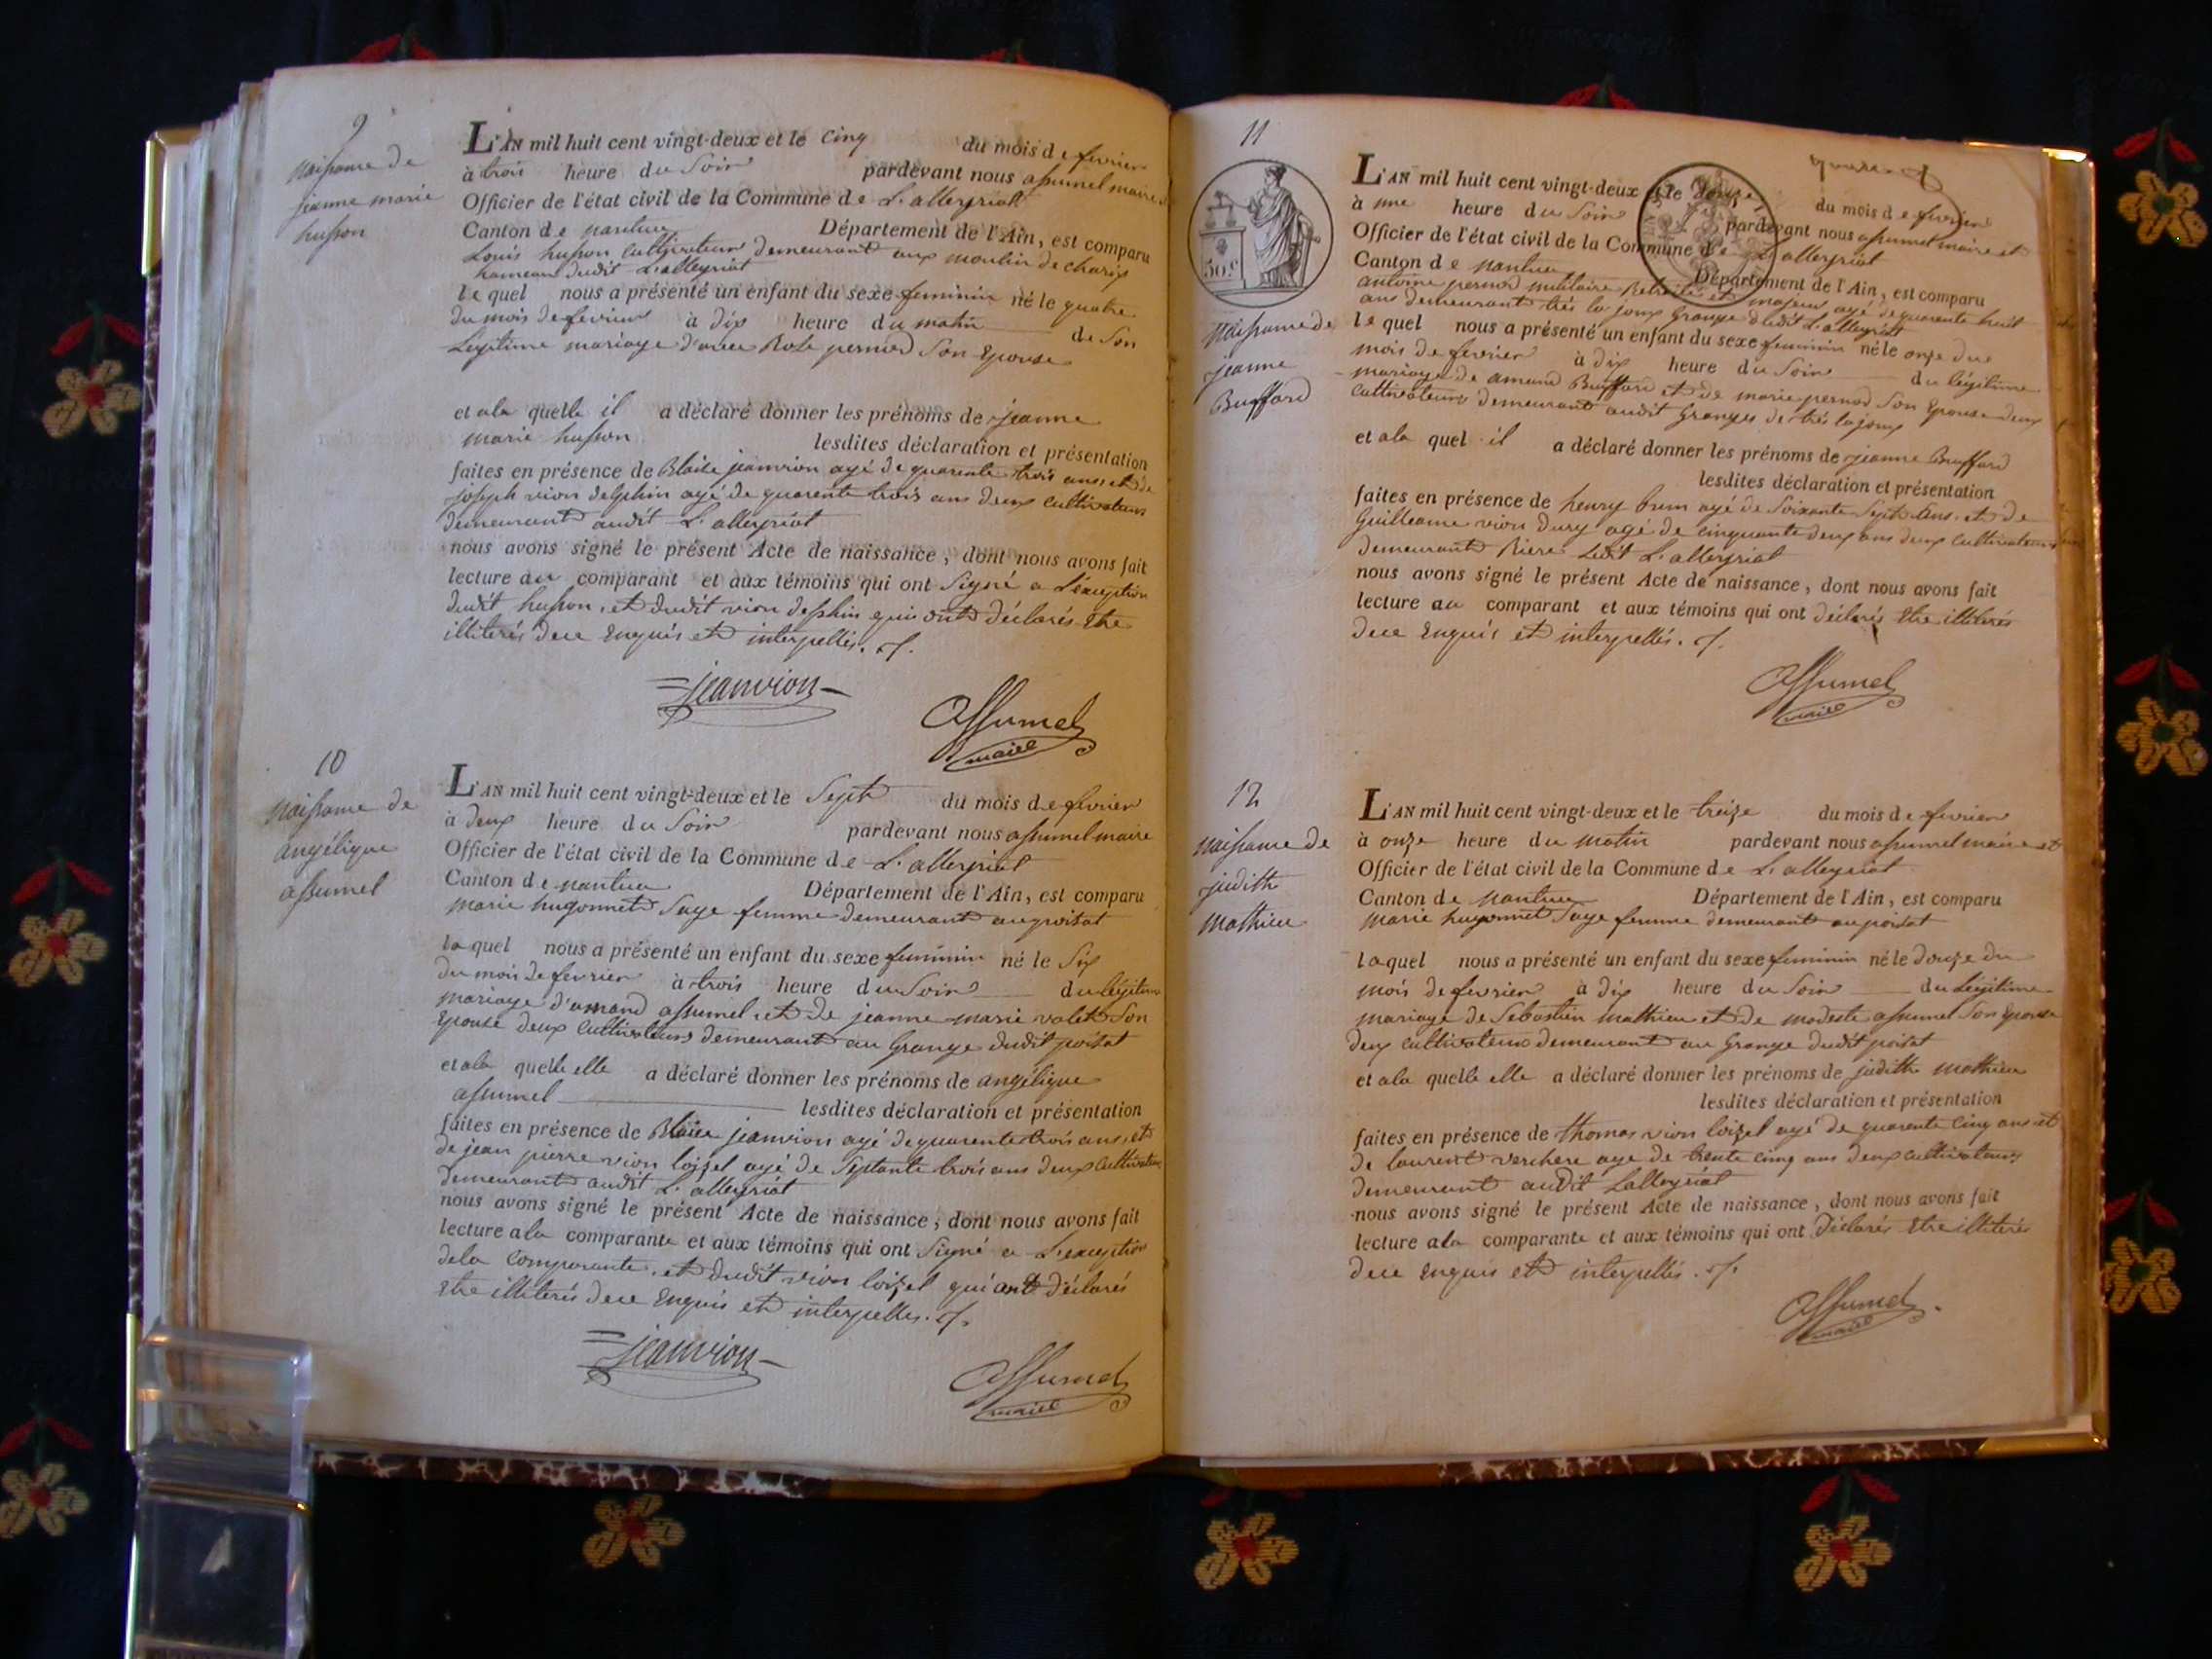 9
naissance de
jeanne marie
husson
L'AN mil huit cent vingt-deux et le cinq du mois de fevrier
à trois heure du Soir pardevant nous assumel maire et
Officier de l'état civil de la Commune de L'alleyriat
Canton de nantua Département de l'Ain, est comparu
Louis husson cultivateur demeurant aux moulin de charix
hameau dudit L'alleyriat
le quel nous a présenté un enfant du sexe feminin né le quatre
du mois de fevrier à dix heure du matin de Son
Legitime mariage d'avec Rose pernod Son Epouse
et a la quelle il a déclaré donner les prénoms de jeanne
marie husson lesdites déclaration et présentation
faites en présence de Blaise jeanvion agé de quarente trois ans et de
joseph vion delphin agé de quarente trois ans deux cultivateurs
demeurant audit L'alleyriat
nous avons signé le présent Acte de naissance, dont nous avons fait
lecture au comparant et aux témoins qui ont Signé a L'exception
dudit husson, et dudit vion delphin qui ont déclarés Etre
illiterés dece Enquis et interpellés.
jeanvion
Assumel
maire
10
naissance de
angélique
assumel
L'AN mil huit cent vingt-deux et le Sept du mois de fevrier
à deux heure du Soir pardevant nous assumel maire
Officier de l'état civil de la Commune de L'alleyriat
Canton de nantua Département de l'Ain, est comparu
marie hugonnet Sage femme demeurant au poisat
la quel nous a présenté un enfant du sexe feminin né le Six
du mois de fevrier à trois heure du Soir du légitime
mariage d'amand assumel et de jeanne marie volet Son
Epouse deux cultivateurs demeurant au Grange dudit poisat
et a la quelle elle a déclaré donner les prénoms de angélique
assumel lesdites déclaration et présentation
faites en présence de Blaise jeanvion agé de quarente trois ans et
de jean pierre vion loizel agé de Septante trois ans deux cultivateurs
demeurant audit L'alleyriat
nous avons signé le présent Acte de naissance, dont nous avons fait
lecture a la comparante et aux témoins qui ont Signé a L'exception
dela comparante, et dudit vion loizel qui ont déclarés
Etre illiterés dece Enquis et interpellés.
jeanvion
Assumel
maire
11
50 c
naissance de
jeanne
Buffard
L'AN mil huit cent vingt-deux et le douze du mois de fevrier
à une heure du Soir pardevant nous assumel maire et
Officier de l'état civil de la Commune de L'alleyriat
Canton de nantua Département de l'Ain, est comparu
antoine pernod militaire Retraité et majeur agé de quarente huit
ans demeurant très la joux Grange dudit L'alleyriat
le quel nous a présenté un enfant du sexe feminin né le onze du
mois de fevrier à dix heure du Soir du légitime
mariage de amand Buffard et de marie pernod Son Epouse deux
cultivateurs demeurant audit Granges de très la joux
et a la quel il a déclaré donner les prénoms de jeanne Buffard
lesdites déclaration et présentation
faites en présence de henry brun agé de Soixante Sept ans et de
Guilleaume vion dury agé de cinquante deux ans deux cultivateurs
demeurant Riere Ledit L'alleyriat
nous avons signé le présent Acte de naissance, dont nous avons fait
lecture au comparant et aux témoins qui ont déclarés Etre illiterés
dece Enquis et interpellés.
Assumel
maire
12
naissance de
judith
mathieu
L'AN mil huit cent vingt-deux et le treize du mois de fevrier
à onze heure du matin pardevant nous assumel maire et
Officier de l'état civil de la Commune de L'alleyriat
Canton de Nantua Département de l'Ain, est comparu
marie hugonnet Sage femme demeurant au poisat
la quel nous a présenté un enfant du sexe feminin né le douze du
mois de fevrier à dix heure du Soir du Légitime
mariage de Sebastien mathieu et de modeste assumel Son Epouse
deux cultivateurs demeurant au Grange dudit poisat
et a la quelle elle a déclaré donner les prénoms de judith mathieu
lesdites déclaration et présentation
faites en présence de thomas vion loizel agé de quarente cinq ans et
de laurent verchere agé de trente cinq ans deux cultivateurs
demeurant audit Lalleyriat
nous avons signé le présent Acte de naissance, dont nous avons fait
lecture a la comparante et aux témoins qui ont Déclarés Etre illiterés
dece Enquis et interpellés.
Assumel
maire